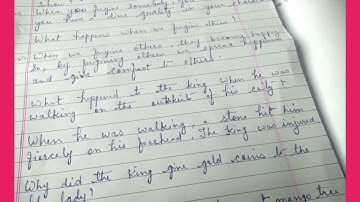 When you forgive somebody, you
you have a fine quality in your character
What happens when we forgive others?
When we forgive others they become happy
So, by forgiving others we spread happiness
and give comfort to others.
What happened to the king when he was
walking on the outskirt of his city?
When he was walking, a stone hit him
fiercely on his forehead. The King was injured
Why did the King give gold coins to the
old lady?
mango tree